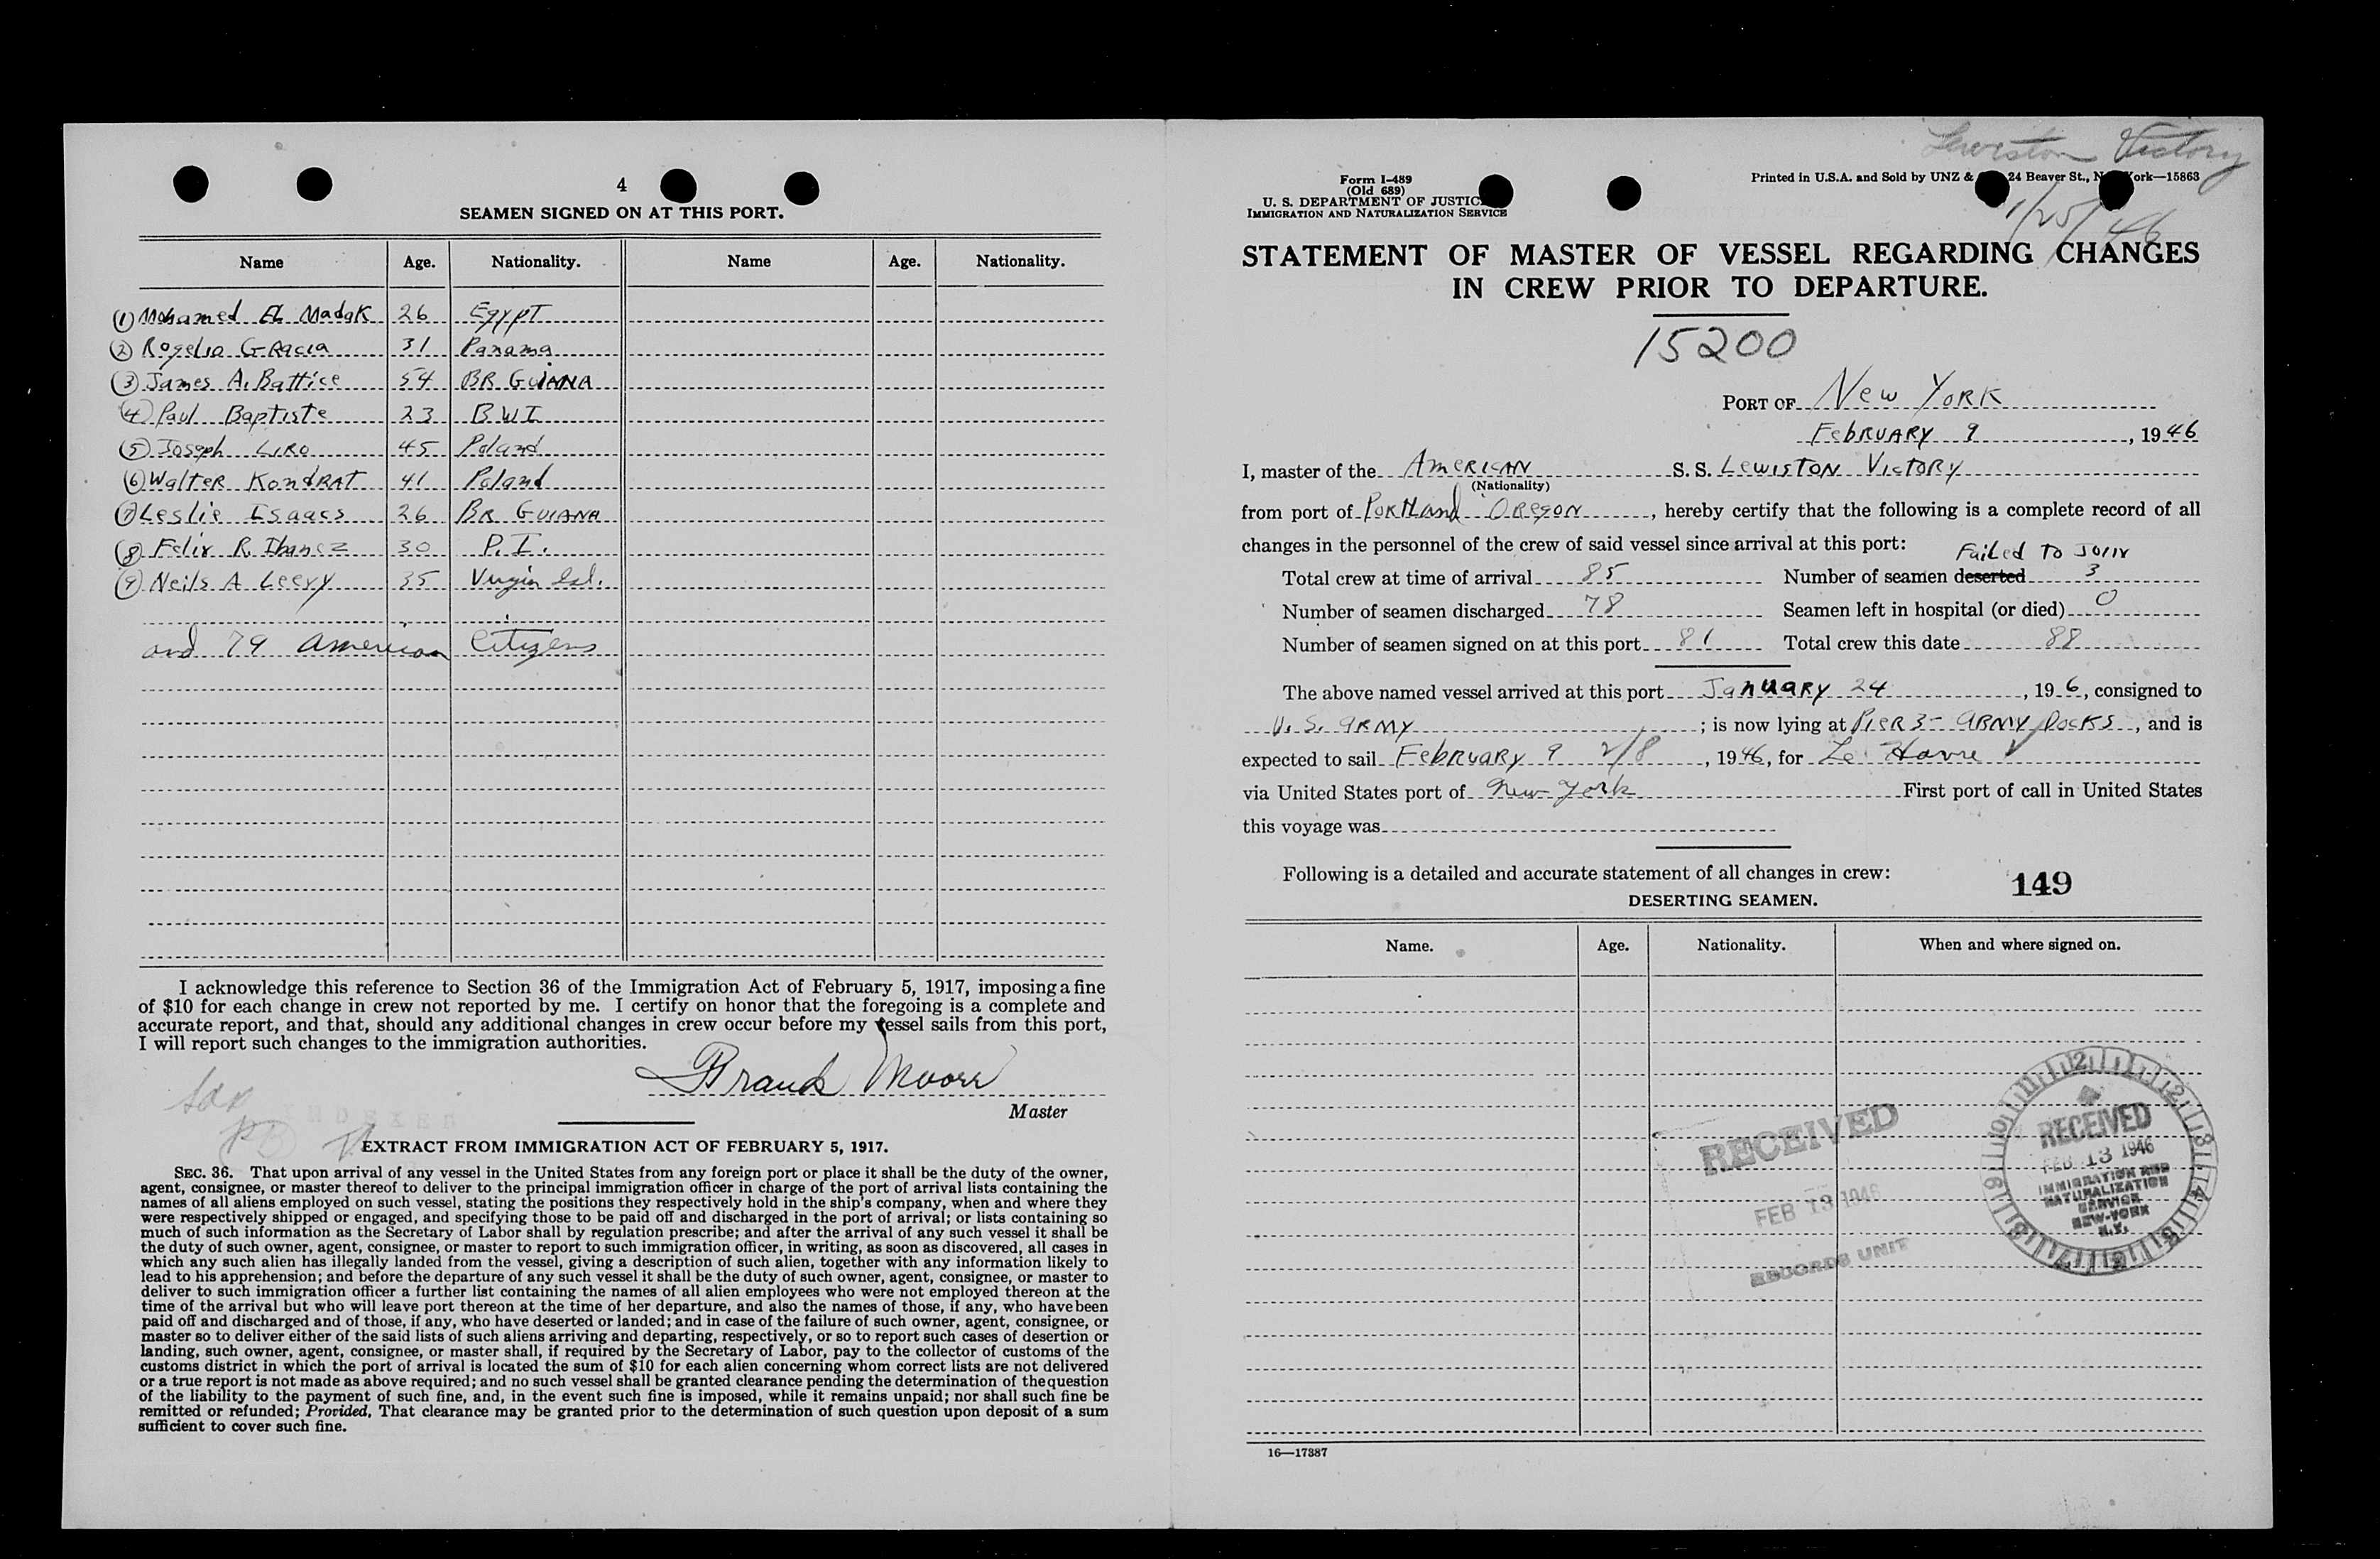 4
SEAMEN SIGNED ON AT THIS PORT.
Name Age. Nationality. Name Age. Nationality.
(1) Mohamed El Madak 26 Egypt
(2) Rogelio GRacia 31 Panama
(3) James A. Battice 54 BR GUIANA
(4) Paul Baptiste 23 BWI
(5) Joseph LIRO 45 Poland
(6) WalteR KondRAT 41 Poland
(7) Leslie Isaacs 26 BR GUIANA
(8) Felix R. Ibanez 30 P.I.
(9) Neils A Leevy 35 Virgin Isl.
and 79 American Citizens
I acknowledge this reference to Section 36 of the Immigration Act of February 5, 1917, imposing a fine
of $10 for each change in crew not reported by me. I certify on honor that the foregoing is a complete and
accurate report, and that, should any additional changes in crew occur before my vessel sails from this port,
I will report such changes to the immigration authorities.
Moore
Master
INDEXED
EXTRACT FROM IMMIGRATION ACT OF FEBRUARY 5, 1917.
SEC. 36. That upon arrival of any vessel in the United States from any foreign port or place it shall be the duty of the owner,
agent, consignee, or master thereof to deliver to the principal immigration officer in charge of the port of arrival lists containing the
names of all aliens employed on such vessel, stating the positions they respectively hold in the ship's company, when and where they
were respectively shipped or engaged, and specifying those to be paid off and discharged in the port of arrival; or lists containing so
much of such information as the Secretary of Labor shall by regulation prescribe; and after the arrival of any such vessel it shall be
the duty of such owner, agent, consignee, or master to report to such immigration officer, in writing, as soon as discovered, all cases in
which any such alien has illegally landed from the vessel, giving a description of such alien, together with any information likely to
lead to his apprehension; and before the departure of any such vessel it shall be the duty of such owner, agent, consignee, or master to
deliver to such immigration officer a further list containing the names of all alien employees who were not employed thereon at the
time of the arrival but who will leave port thereon at the time of her departure, and also the names of those, if any, who have been
paid off and discharged and of those, if any, who have deserted or landed; and in case of the failure of such owner, agent, consignee, or
master so to deliver either of the said lists of such aliens arriving and departing, respectively, or so to report such cases of desertion or
landing, such owner, agent, consignee, or master shall, if required by the Secretary of Labor, pay to the collector of customs of the
customs district in which the port of arrival is located the sum of $10 for each alien concerning whom correct lists are not delivered
or a true report is not made as above required; and no such vessel shall be granted clearance pending the determination of the question
of the liability to the payment of such fine, and, in the event such fine is imposed, while it remains unpaid; nor shall such fine be
remitted or refunded; Provided, That clearance may be granted prior to the determination of such question upon deposit of a sum
sufficient to cover such fine.
Lewiston Victory
1/25/46
Form I-489
(Old 689)
U. S. DEPARTMENT OF JUSTIC
IMMIGRATION AND NATURALIZATION SERVICE
Printed in U.S.A. and Sold by UNZ & 24 Beaver St., N ork—15863
STATEMENT OF MASTER OF VESSEL REGARDING CHANGES
IN CREW PRIOR TO DEPARTURE.
15200
PORT OF New YORK
FebRUARY 9, 1946
I, master of the AmeRICAN S. S. LewISTON VIcTORY
(Nationality)
from port of PORTLand OReGON, hereby certify that the following is a complete record of all
changes in the personnel of the crew of said vessel since arrival at this port:
Failed To Join
Total crew at time of arrival 85 Number of seamen deserted 3
Number of seamen discharged 78 Seamen left in hospital (or died) 0
Number of seamen signed on at this port 81 Total crew this date 88
The above named vessel arrived at this port JanUARY 24, 19 6, consigned to
U.S. ARMY; is now lying at PIER 3- ARMY DocKS, and is
expected to sail FebRUARY 9 2/8, 1946, for Le Havre
via United States port of New York First port of call in United States
this voyage was
Following is a detailed and accurate statement of all changes in crew:
149
DESERTING SEAMEN.
Name. Age. Nationality. When and where signed on.
RECEIVED
FEB 13 1946
RECORDS UNIT
RECEIVED
FEB 13 1946
IMMIGRATION AND
NATURALIZATION
SERVICE
NEW-YORK
N.Y.
16—17387